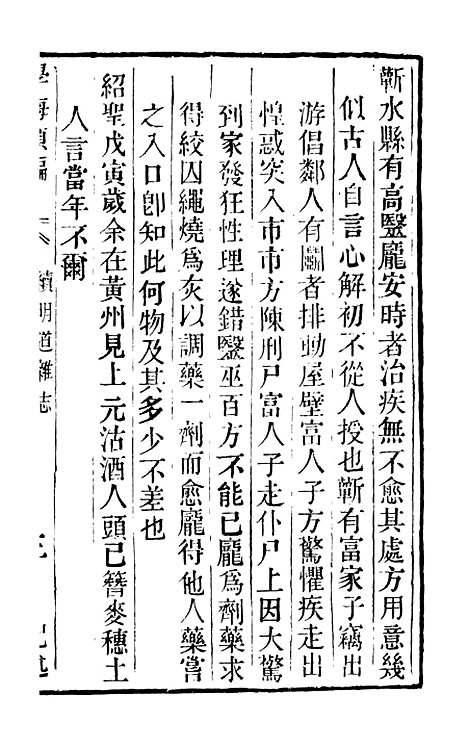 蘄水縣有高醫龐安時者治疾無不愈其處方用意幾
似古人自言心解初不從人授也蘄有富家子竊出
游倡鄰人有鬭者排動屋壁富人子方驚懼疾走出
惶惑突入市市方陳刑尸富人子走仆尸上因大驚
到家發狂性理遂錯醫巫百方不能已龐爲劑藥求
得絞囚繩燒爲灰以調藥一劑而愈龐得他人藥嘗
之入口卽知此何物及其多少不差也
紹聖戊寅歲余在黃州見上元沽酒人頭已簪麥穗土
人言當年不爾
學海類編
續明道雜志